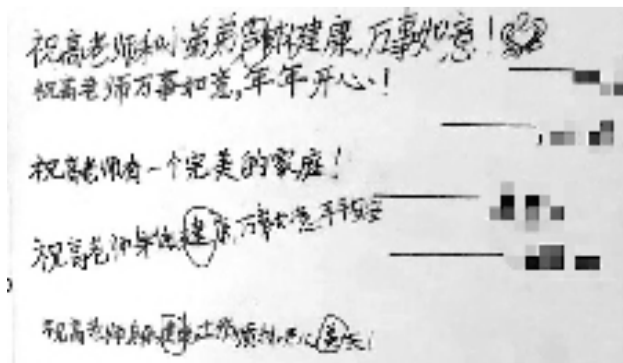 祝高老师和小弟弟身体健康,万事如意!
祝高老师万事如意,年年开心!
祝高老师有一个完美的家庭!
祝高老师身体健康,万事如意,平平安安
祝高老师身体健康